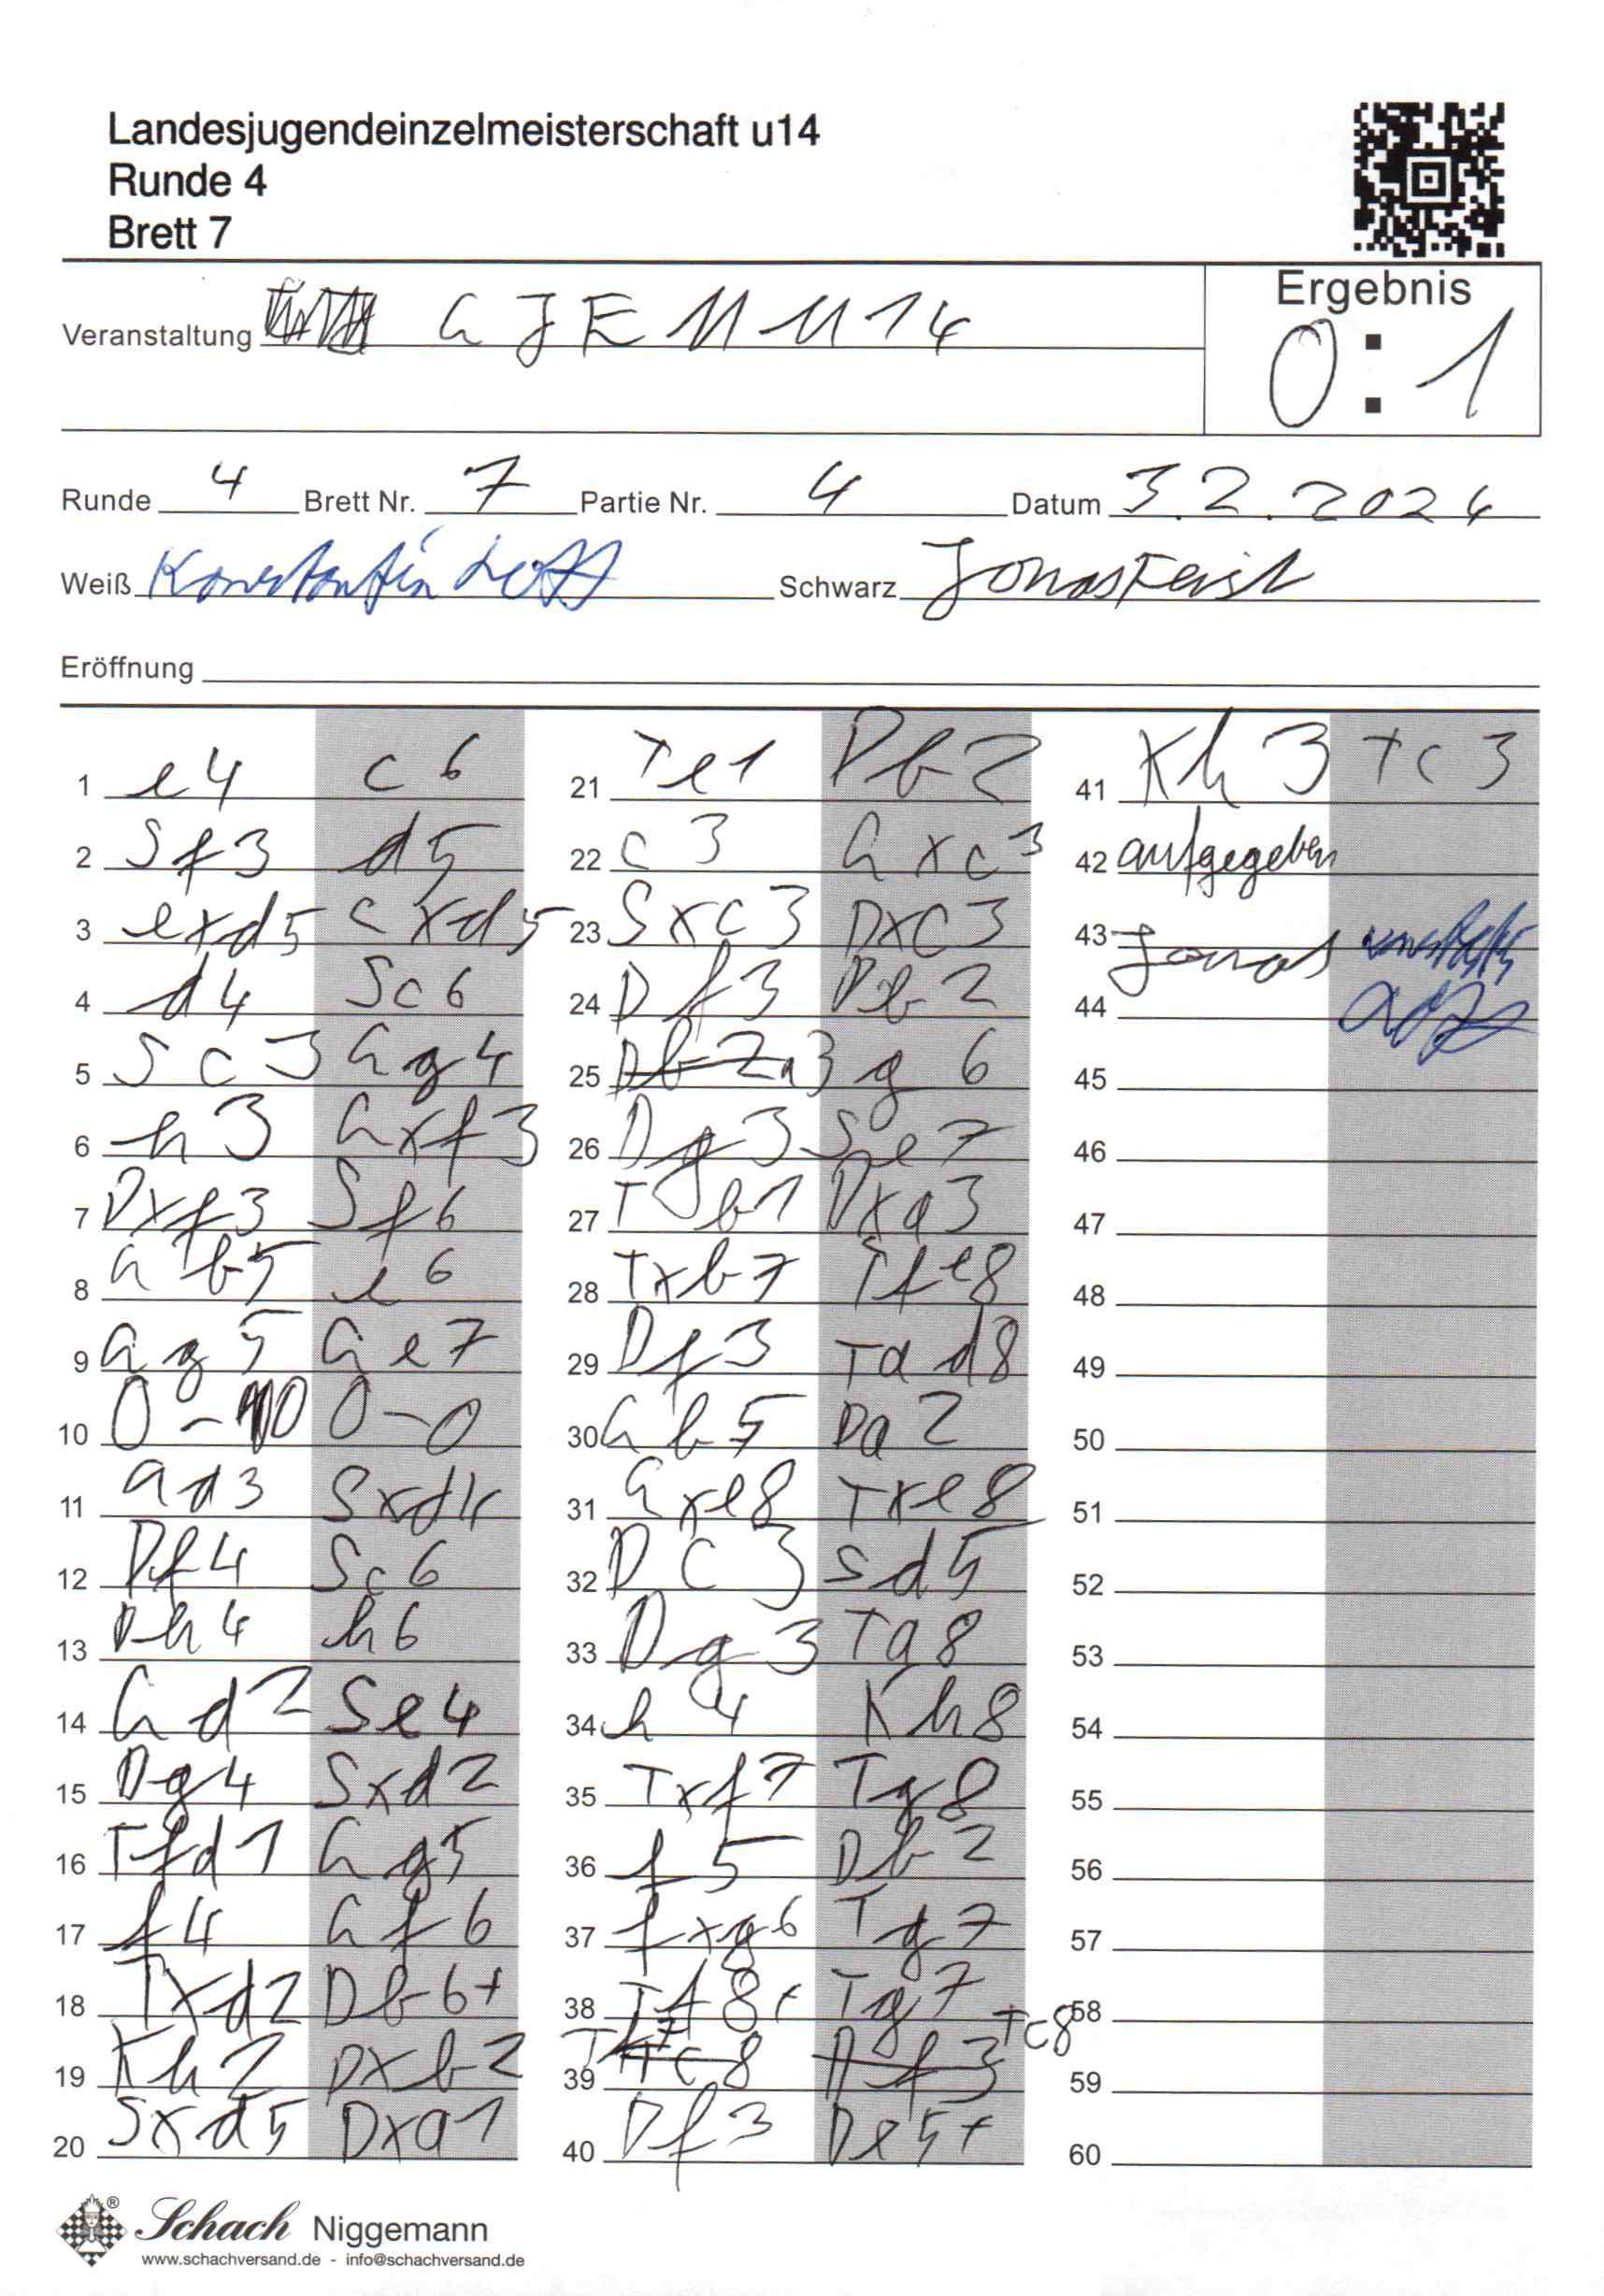 Landesjugendeinzelmeisterschaft u14
Runde 4
Brett 7
Veranstaltung LJEM U14
Ergebnis
0 : 1
Runde 4 Brett Nr. 7 Partie Nr. 4 Datum 3.2.2024
Weiß Konstantin Schwarz Jonas Feist
Eröffnung
1 e4 c6
2 Sf3 d5
3 exd5 cxd5
4 d4 Sc6
5 Sc3 Lg4
6 h3 Lxf3
7 Dxf3 Sf6
8 Lb5 e6
9 Lg5 Le7
10 0-0 0-0
11 Ld3 Sxd4
12 Df4 Sc6
13 Dh4 h6
14 Ld2 Se4
15 Dg4 Sxd2
16 Tfd1 Lg5
17 f4 Lf6
18 Txd2 Db6+
19 Kh2 Dxb2
20 Sxd5 Dxa1
21 Te1 Db2
22 c3 Lxc3
23 Sxc3 Dxc3
24 Df3 Db2
25 a3 g6
26 Dg3 Se7
27 Tb1 Dxa3
28 Txb7 Tfe8
29 Df3 Tad8
30 Lb5 Da2
31 Lxe8 Txe8
32 Dc3 Sd5
33 Dg3 Ta8
34 h4 Kh8
35 Txf7 Tg8
36 f5 Db2
37 fxg6 Tg7
38 Tf8+ Tg7
39 Tf7 Tc8
40 Df3 De5+
41 Kh3 Tc3
42 aufgegeben
43 Jonas
44
45
46
47
48
49
50
51
52
53
54
55
56
57
58
59
60
Schach Niggemann
www.schachversand.de - info@schachversand.de